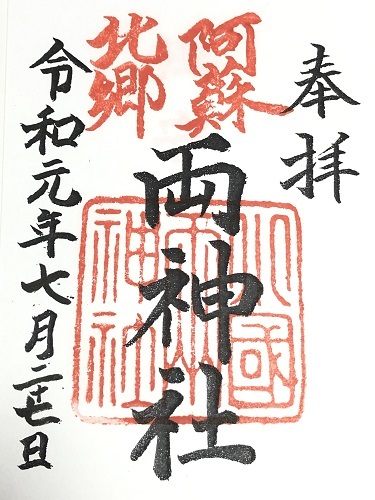 奉拝
阿蘇
北郷
両神社
小國両神社
令和元年七月二十七日